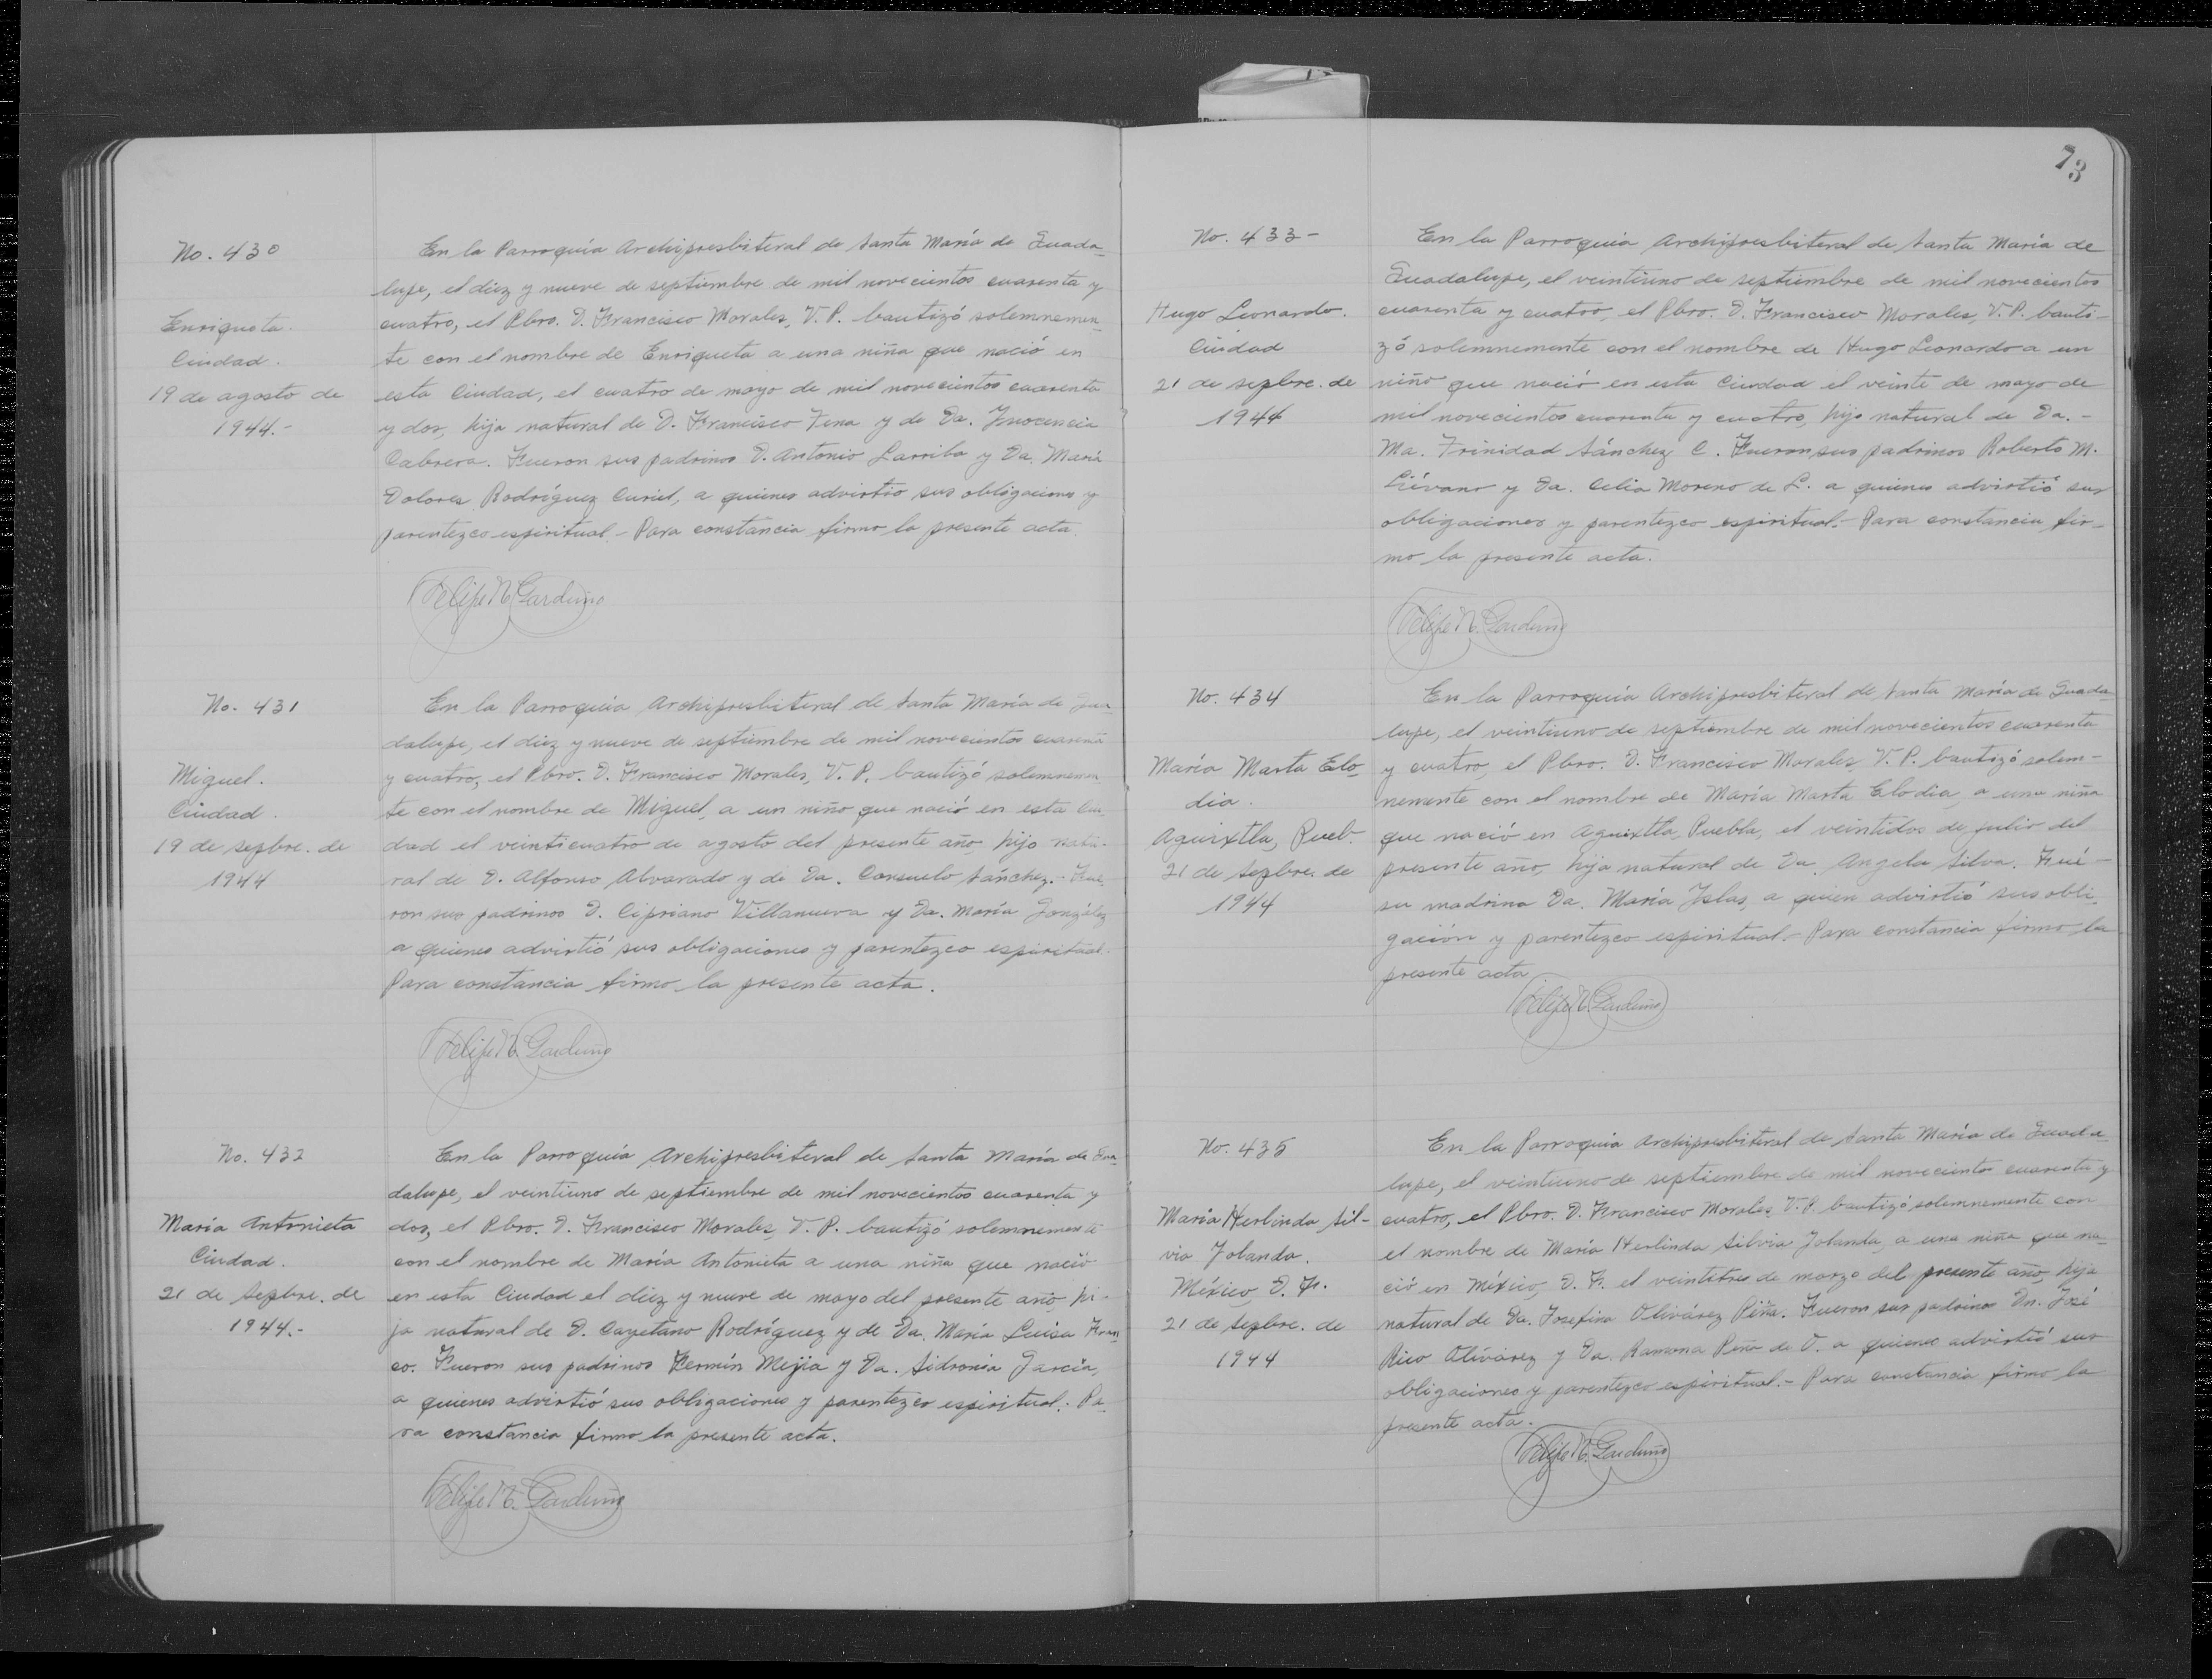 73
No. 430
Enriqueta.
Ciudad.
19 de agosto de
1944.-
En la Parroquia Archipresbiteral de Santa María de Guada-
lupe, el diez y nueve de septiembre de mil novecientos cuarenta y
cuatro, el Pbro. D. Francisco Morales, V. P. bautizó solemnemen-
te con el nombre de Enriqueta a una niña que nació en
esta Ciudad, el cuatro de mayo de mil novecientos cuarenta
y dos, hija natural de D. Francisco Tena y de Da. Inocencia
Cabrera. Fueron sus padrinos D. Antonio Larriba y Da. María
Dolores Rodríguez Curiel, a quienes advirtió sus obligaciones y
parentezco espiritual.- Para constancia firmo la presente acta.
Felipe N. Garduño
No. 431
Miguel.
Ciudad.
19 de sepbre. de
1944
En la Parroquia Archipresbiteral de Santa María de Gua-
dalupe, el diez y nueve de septiembre de mil novecientos cuarenta
y cuatro, el Pbro. D. Francisco Morales, V. P. bautizó solemnemen-
te con el nombre de Miguel, a un niño que nació en esta Ciu-
dad el veinticuatro de agosto del presente año, hijo natu-
ral de D. Alfonso Alvarado y de Da. Consuelo Sánchez.- Fue-
ron sus padrinos D. Cipriano Villanueva y Da. María González
a quienes advirtió sus obligaciones y parentezco espiritual.
Para constancia firmo la presente acta.
Felipe N. Garduño
No. 432
María Antonieta
Ciudad.
21 de Sepbre. de
1944.-
En la Parroquia Archipresbiteral de Santa María de Gua-
dalupe, el veintiuno de septiembre de mil novecientos cuarenta y
dos, el Pbro. D. Francisco Morales, V. P. bautizó solemnemente
con el nombre de María Antonieta a una niña que nació
en esta Ciudad el diez y nueve de mayo del presente año, hi-
ja natural de D. Cayetano Rodríguez y de Da. María Luisa Fran-
co. Fueron sus padrinos Fermín Mejia y Da. Sidronia García,
a quienes advirtió sus obligaciones y parentezco espiritual.- Pa-
ra constancia firmo la presente acta.
Felipe N. Garduño
No. 433-
Hugo Leonardo.
Ciudad
21 de sepbre. de
1944
En la Parroquia Archipresbiteral de Santa María de
Guadalupe, el veintiuno de septiembre de mil novecientos
cuarenta y cuatro, el Pbro. D. Francisco Morales, V. P. bauti-
zó solemnemente con el nombre de Hugo Leonardo a un
niño que nació en esta Ciudad el veinte de mayo de
mil novecientos cuarenta y cuatro, hijo natural de Da.-
Ma. Trinidad Sánchez C. Fueron sus padrinos Roberto M.
Liévano y Da. Celia Moreno de L. a quienes advirtió sus
obligaciones y parentezco espiritual.- Para constancia fir-
mo la presente acta.
Felipe N. Garduño
No. 434
María Marta Elo-
dia.
Aquixtla, Pueb.
21 de Sepbre. de
1944
En la Parroquia Archipresbiteral de Santa María de Guada-
lupe, el veintiuno de septiembre de mil novecientos cuarenta
y cuatro, el Pbro. D. Francisco Morales, V. P. bautizó solem-
nemente con el nombre de María Marta Elodia, a una niña
que nació en Aquixtla, Puebla, el veintidos de julio del
presente año, hija natural de Da. Angela Silva. Fué-
su madrina Da. María Islas, a quien advirtió sus obli-
gación y parentezco espiritual.- Para constancia firmo la
presente acta
Felipe N. Garduño
No. 435
María Herlinda Sil-
via Yolanda.
México, D. F.
21 de Sepbre. de
1944
En la Parroquia Archipresbiteral de Santa María de Guada-
lupe, el veintiuno de septiembre de mil novecientos cuarenta y
cuatro, el Pbro. D. Francisco Morales, V. P. bautizó solemnemente con
el nombre de María Herlinda Silvia Yolanda, a una niña que na-
ció en México, D. F. el veintitres de marzo del presente año, hija
natural de Da. Josefina Olivárez Peña. Fueron sus padrinos Dn. José
Rico Olivárez y Da. Ramona Peña de O. a quienes advirtió sus
obligaciones y parentezco espiritual.- Para constancia firmo la
presente acta.
Felipe N. Garduño